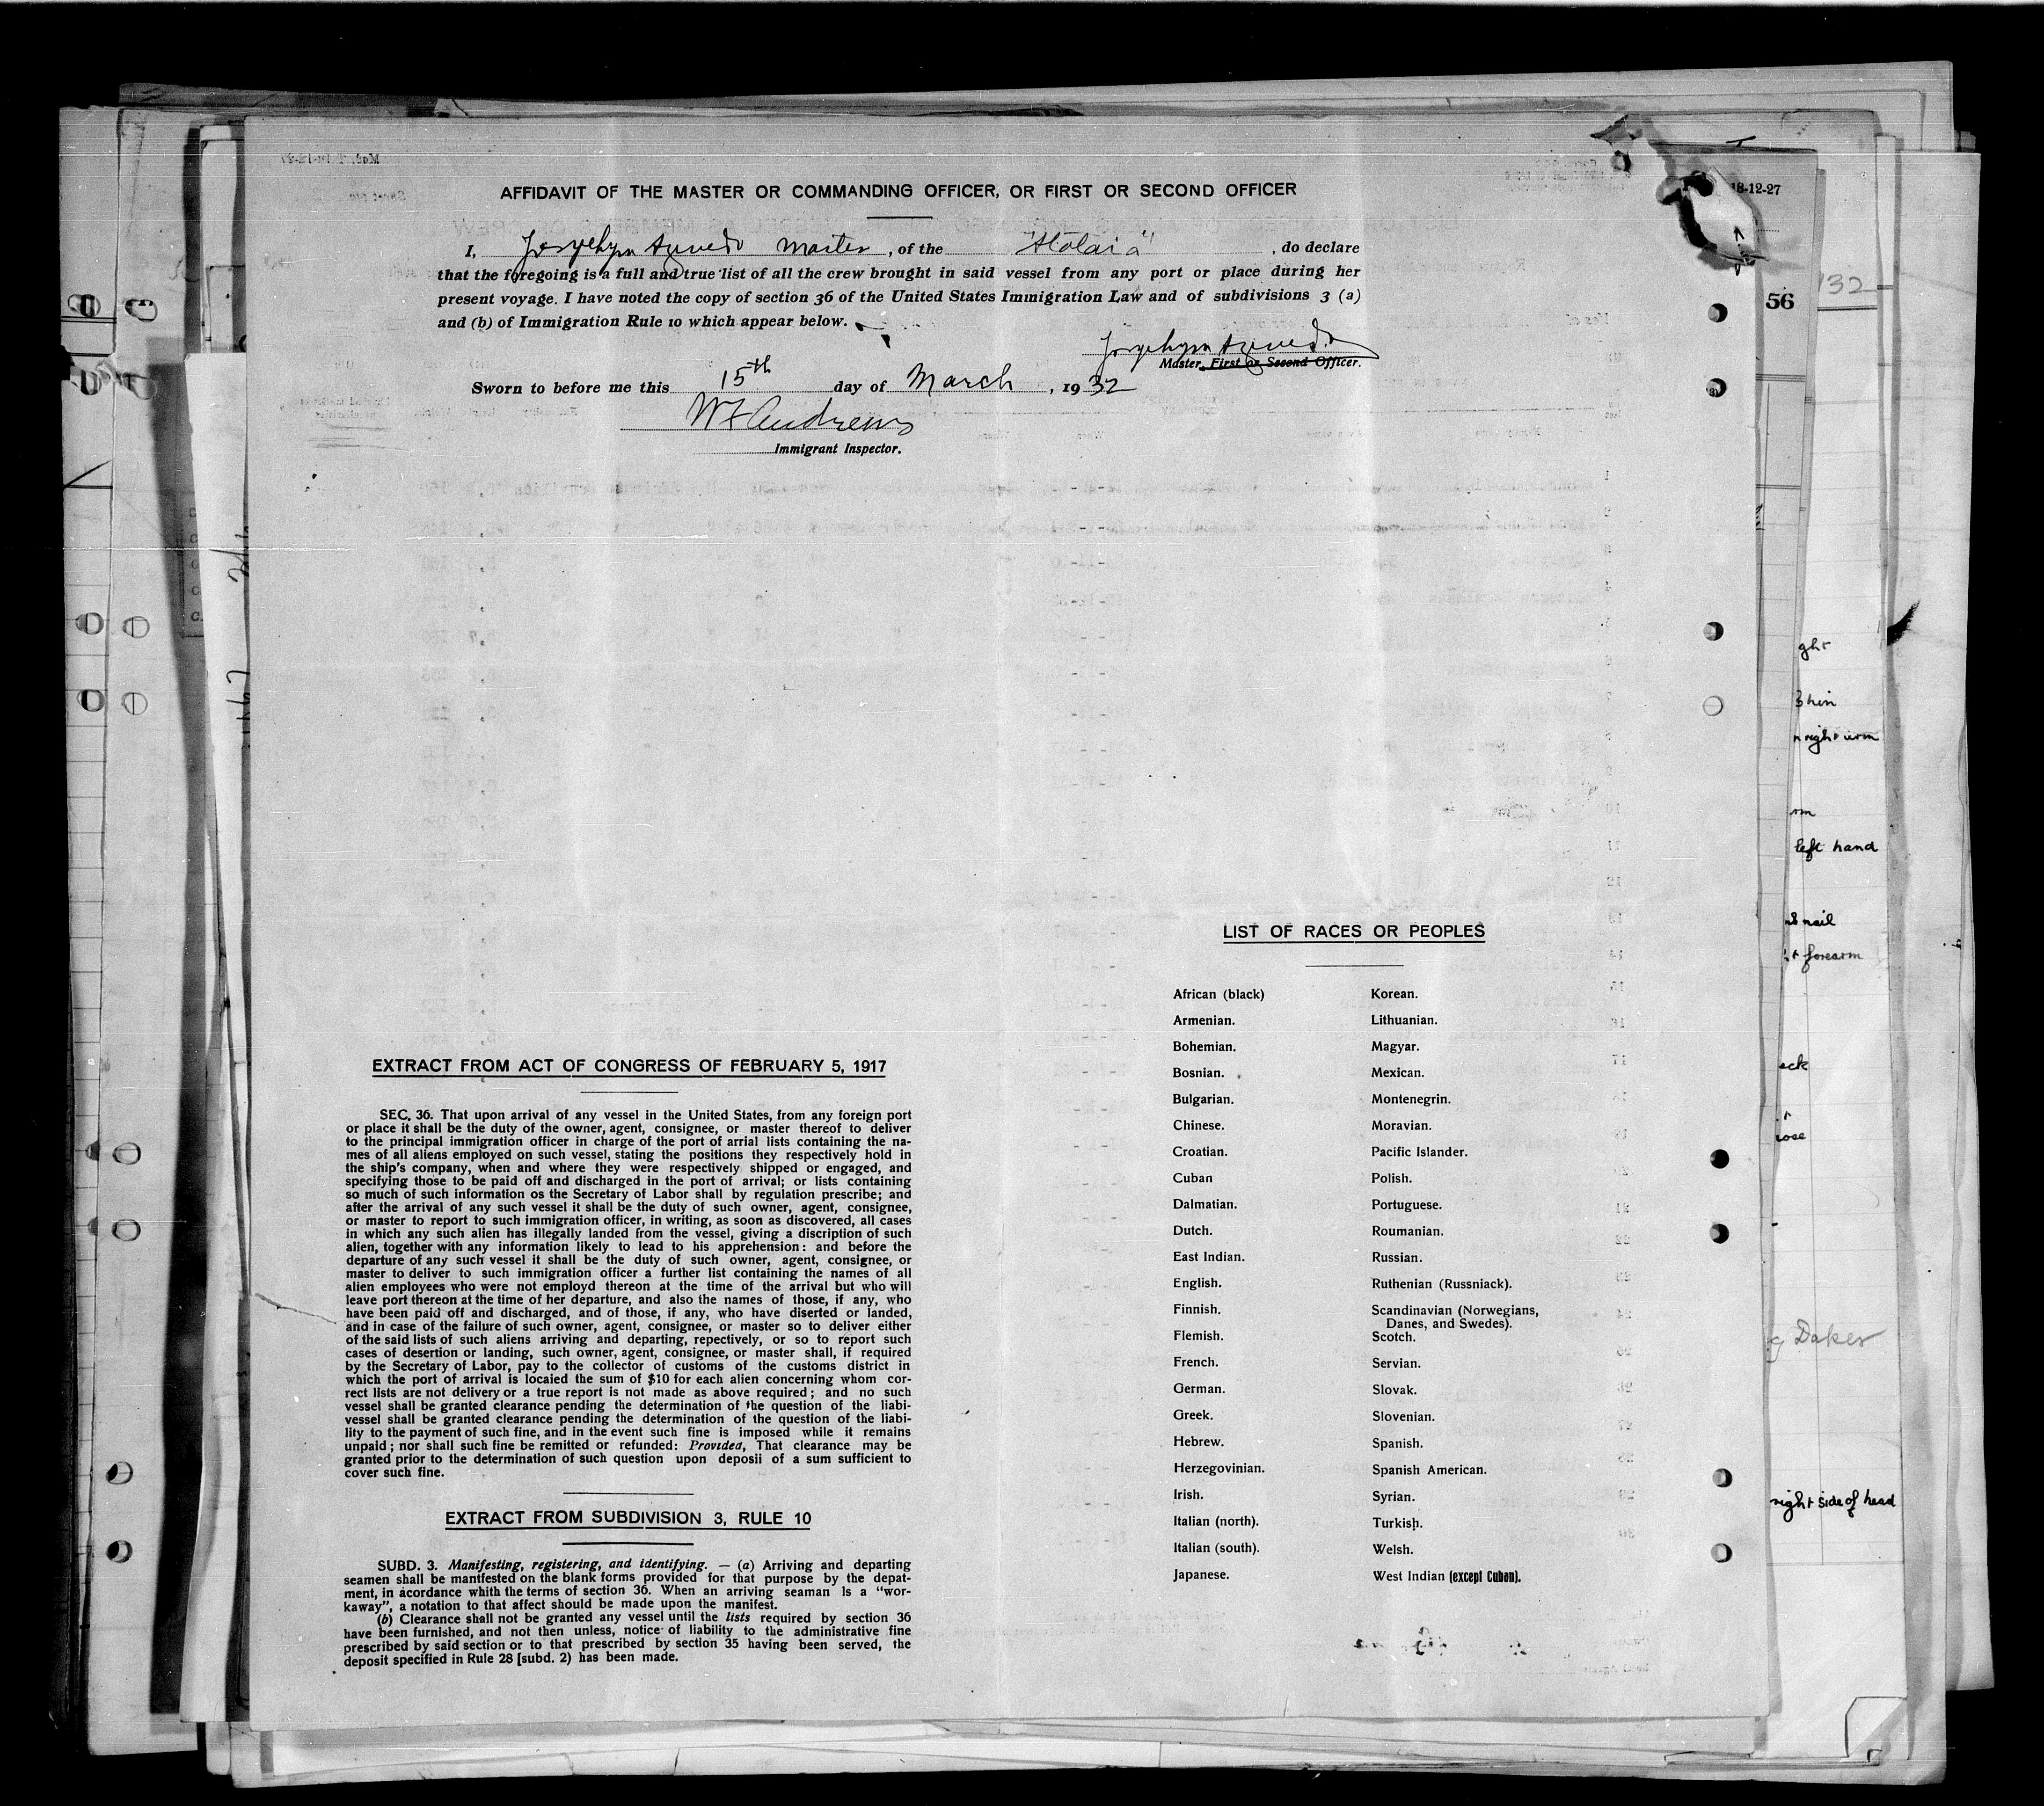 18-12-27
56
132
AFFIDAVIT OF THE MASTER OR COMMANDING OFFICER, OR FIRST OR SECOND OFFICER
I, Azevedo Master, of the "Atalaia", do declare
that the foregoing is a full and true list of all the crew brought in said vessel from any port or place during her
present voyage. I have noted the copy of section 36 of the United States Immigration Law and of subdivisions 3 (a)
and (b) of Immigration Rule 10 which appear below.
Azevedo
Master, First or Second Officer.
Sworn to before me this 15th day of March, 1932
W F Andrews
Immigrant Inspector.
EXTRACT FROM ACT OF CONGRESS OF FEBRUARY 5, 1917
SEC. 36. That upon arrival of any vessel in the United States, from any foreign port
or place it shall be the duty of the owner, agent, consignee, or master thereof to deliver
to the principal immigration officer in charge of the port of arrial lists containing the na-
mes of all aliens employed on such vessel, stating the positions they respectively hold in
the ship's company, when and where they were respectively shipped or engaged, and
specifying those to be paid off and discharged in the port of arrival; or lists containing
so much of such information os the Secretary of Labor shall by regulation prescribe; and
after the arrival of any such vessel it shall be the duty of such owner, agent, consignee,
or master to report to such immigration officer, in writing, as soon as discovered, all cases
in which any such alien has illegally landed from the vessel, giving a discription of such
alien, together with any information likely to lead to his apprehension: and before the
departure of any such vessel it shall be the duty of such owner, agent, consignee, or
master to deliver to such immigration officer a further list containing the names of all
alien employees who were not employd thereon at the time of the arrival but who will
leave port thereon at the time of her departure, and also the names of those, if any, who
have been paid off and discharged, and of those, if any, who have diserted or landed,
and in case of the failure of such owner, agent, consignee, or master so to deliver either
of the said lists of such aliens arriving and departing, repectively, or so to report such
cases of desertion or landing, such owner, agent, consignee, or master shall, if required
by the Secretary of Labor, pay to the collector of customs of the customs district in
which the port of arrival is locaied the sum of $10 for each alien concerning whom cor-
rect lists are not delivery or a true report is not made as above required; and no such
vessel shall be granted clearance pending the determination of the question of the liabi-
vessel shall be granted clearance pending the determination of the question of the liabi-
lity to the payment of such fine, and in the event such fine is imposed while it remains
unpaid; nor shall such fine be remitted or refunded: Provided, That clearance may be
granted prior to the determination of such question upon deposii of a sum sufficient to
cover such fine.
EXTRACT FROM SUBDIVISION 3, RULE 10
SUBD. 3. Manifesting, registering, and identifying. — (a) Arriving and departing
seamen shall be mantfested on the blank forms provided for that purpose by the depat-
ment, in acordance whith the terms of section 36. When an arriving seaman Is a "wor-
kaway", a notation to that affect should be made upon the manifest.
(b) Clearance shall not be granted any vessel until the lists required by section 36
have been furnished, and not then unless, notice of liability to the administrative fine
prescribed by said section or to that prescribed by section 35 having been served, the
deposit specified in Rule 28 [subd. 2) has been made.
LIST OF RACES OR PEOPLES
African (black)
Armenian.
Bohemian.
Bosnian.
Bulgarian.
Chinese.
Croatian.
Cuban
Dalmatian.
Dutch.
East Indian.
English.
Finnish.
Flemish.
French.
German.
Greek.
Hebrew.
Herzegovinian.
Irish.
Italian (north).
Italian (south).
Japanese.
Korean.
Lithuanian.
Magyar.
Mexican.
Montenegrin.
Moravian.
Pacific Islander.
Polish.
Portuguese.
Roumanian.
Russian.
Ruthenian (Russniack).
Scandinavian (Norwegians,
Danes, and Swedes).
Scotch.
Servian.
Slovak.
Slovenian.
Spanish.
Spanish American.
Syrian.
Turkish.
Welsh.
West Indian (except Cuban).
right arm
left hand
nail
forearm
right side of head